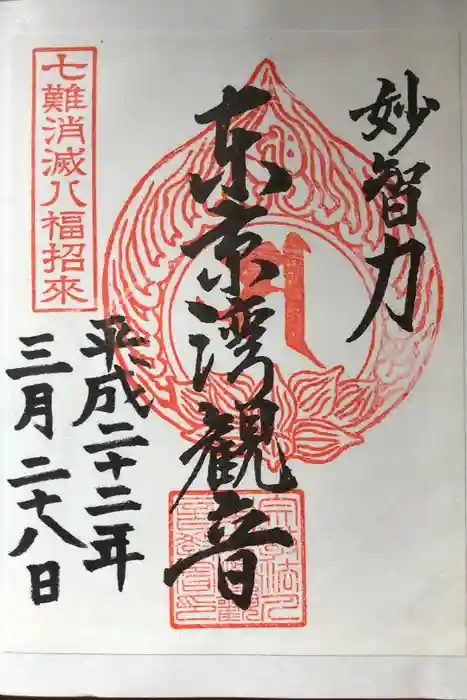 妙智力
東京湾観音
平成二十二年
三月二十八日
七難消滅八福招来